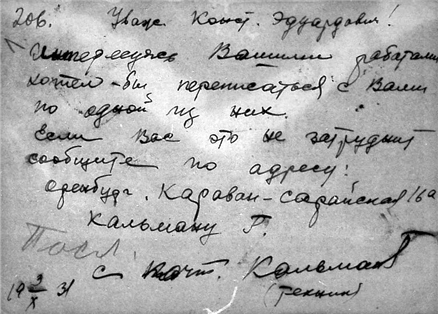 206. Уваж. Конст. Эдуардович!
Интересуясь Вашими работами
хотел-бы переписаться с Вами
по одной из них.
Если Вас это не затруднит
сообщите по адресу:
Оренбург. Караван-Сарайская 16а
Кальману Г.
Посл.
С почт. Кальман Г
(техник)
19 3/X 31